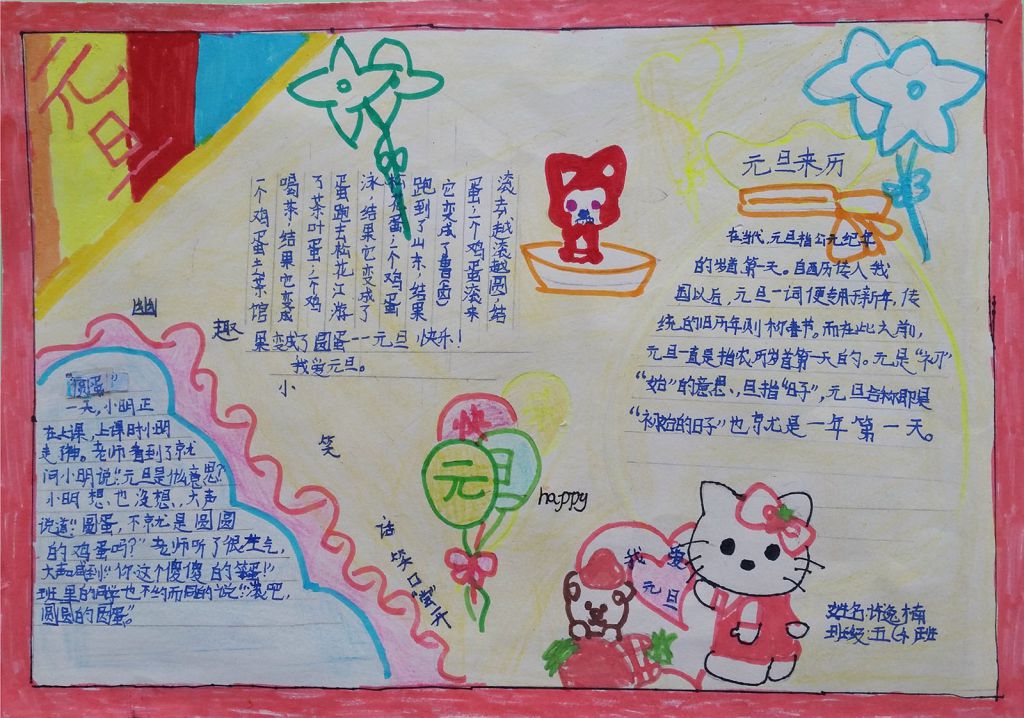 元旦
元旦来历
在当代,元旦指公元纪年
的岁首第一天。自西历传入我
国以后,元旦一词便专用于新年,传
统的旧历年则称春节。而在此之前,
元旦一直是指农历岁首第一天的。元是“初”
“始”的意思,旦指“日子”,元旦合称即是
“初始的日子”也就是一年第一天。
一个鸡蛋去茶馆
喝茶,结果它变成
了茶叶蛋;一个鸡
蛋跑去松花江游
泳,结果它变成了
松花蛋;一个鸡蛋
跑到了山东,结果
它变成了鲁(卤)
蛋;一个鸡蛋滚来
滚去越滚越圆,结
果变成了圆蛋——元旦,快乐!
我爱元旦。
幽
趣
小
笑
话
笑口常开
“圆蛋”
一天,小明正
在上课,上课时小明
走神。老师看到了就
问小明说:“元旦是什么意思?”
小明想也没想,大声
说道:“圆蛋,不就是圆圆
的鸡蛋吗?”老师听了很生气,
大声喊到“你这个傻傻的笨蛋!”
班里的同学也不约而同的说:“滚吧,
圆圆的圆蛋。”
快
元旦
happy
我爱
元旦
姓名:许逸楠
班级:五(4)班